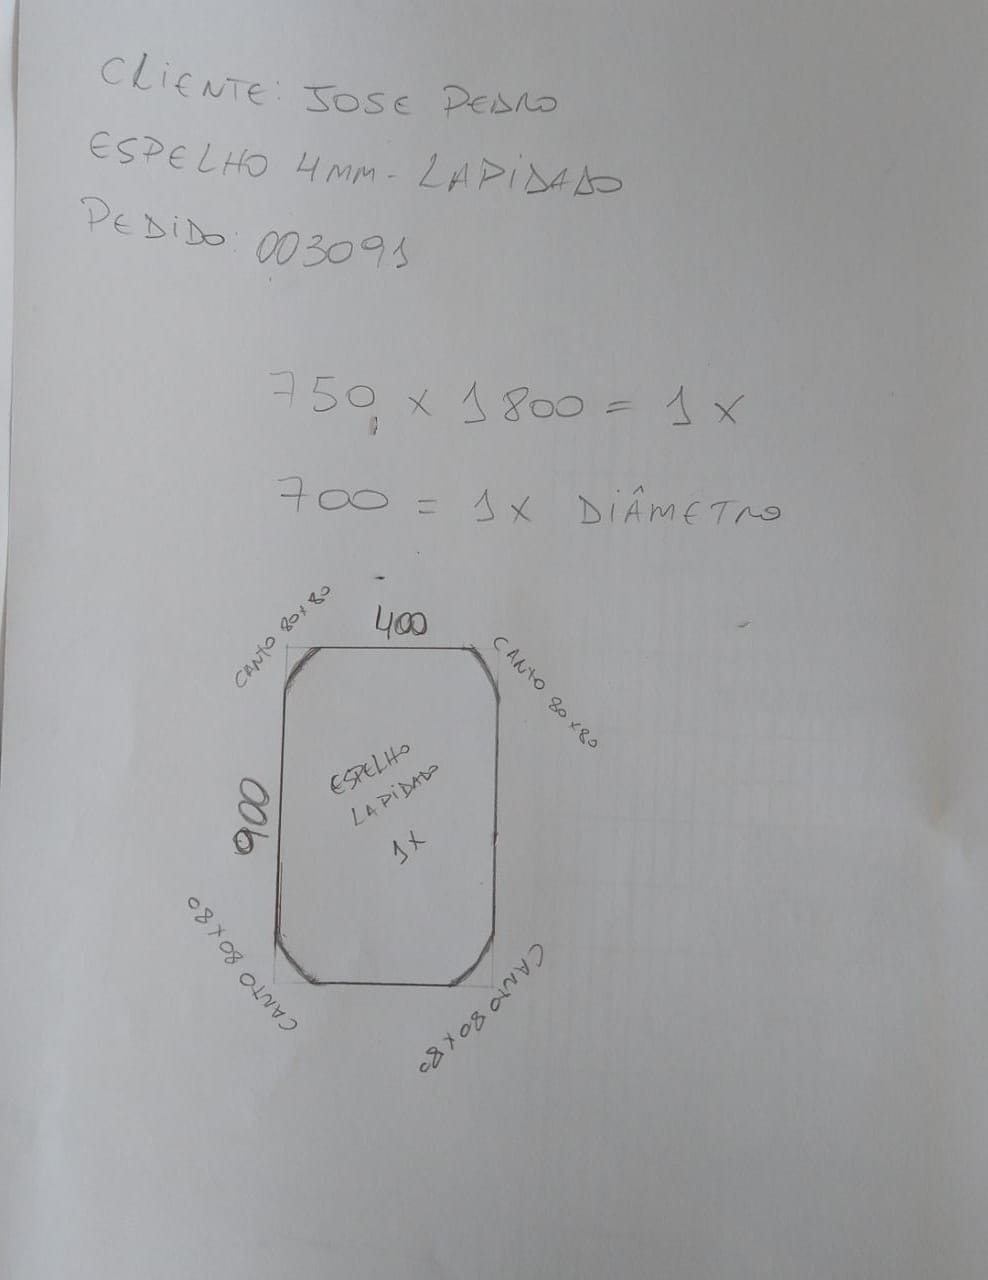 CLIENTE: JOSE PEDRO
ESPELHO 4MM - LAPIDADO
PEDIDO: 003091
750 x 1800 = 1 x
700 = 1x DIÂMETRO
CANTO 80x80
400
CANTO 80x80
900
ESPELHO
LAPIDADO
1x
CANTO 80x80
CANTO 80x80